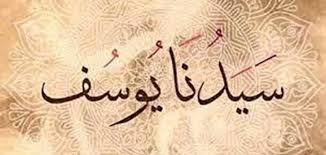 سَيَدُنَا يُوسُف